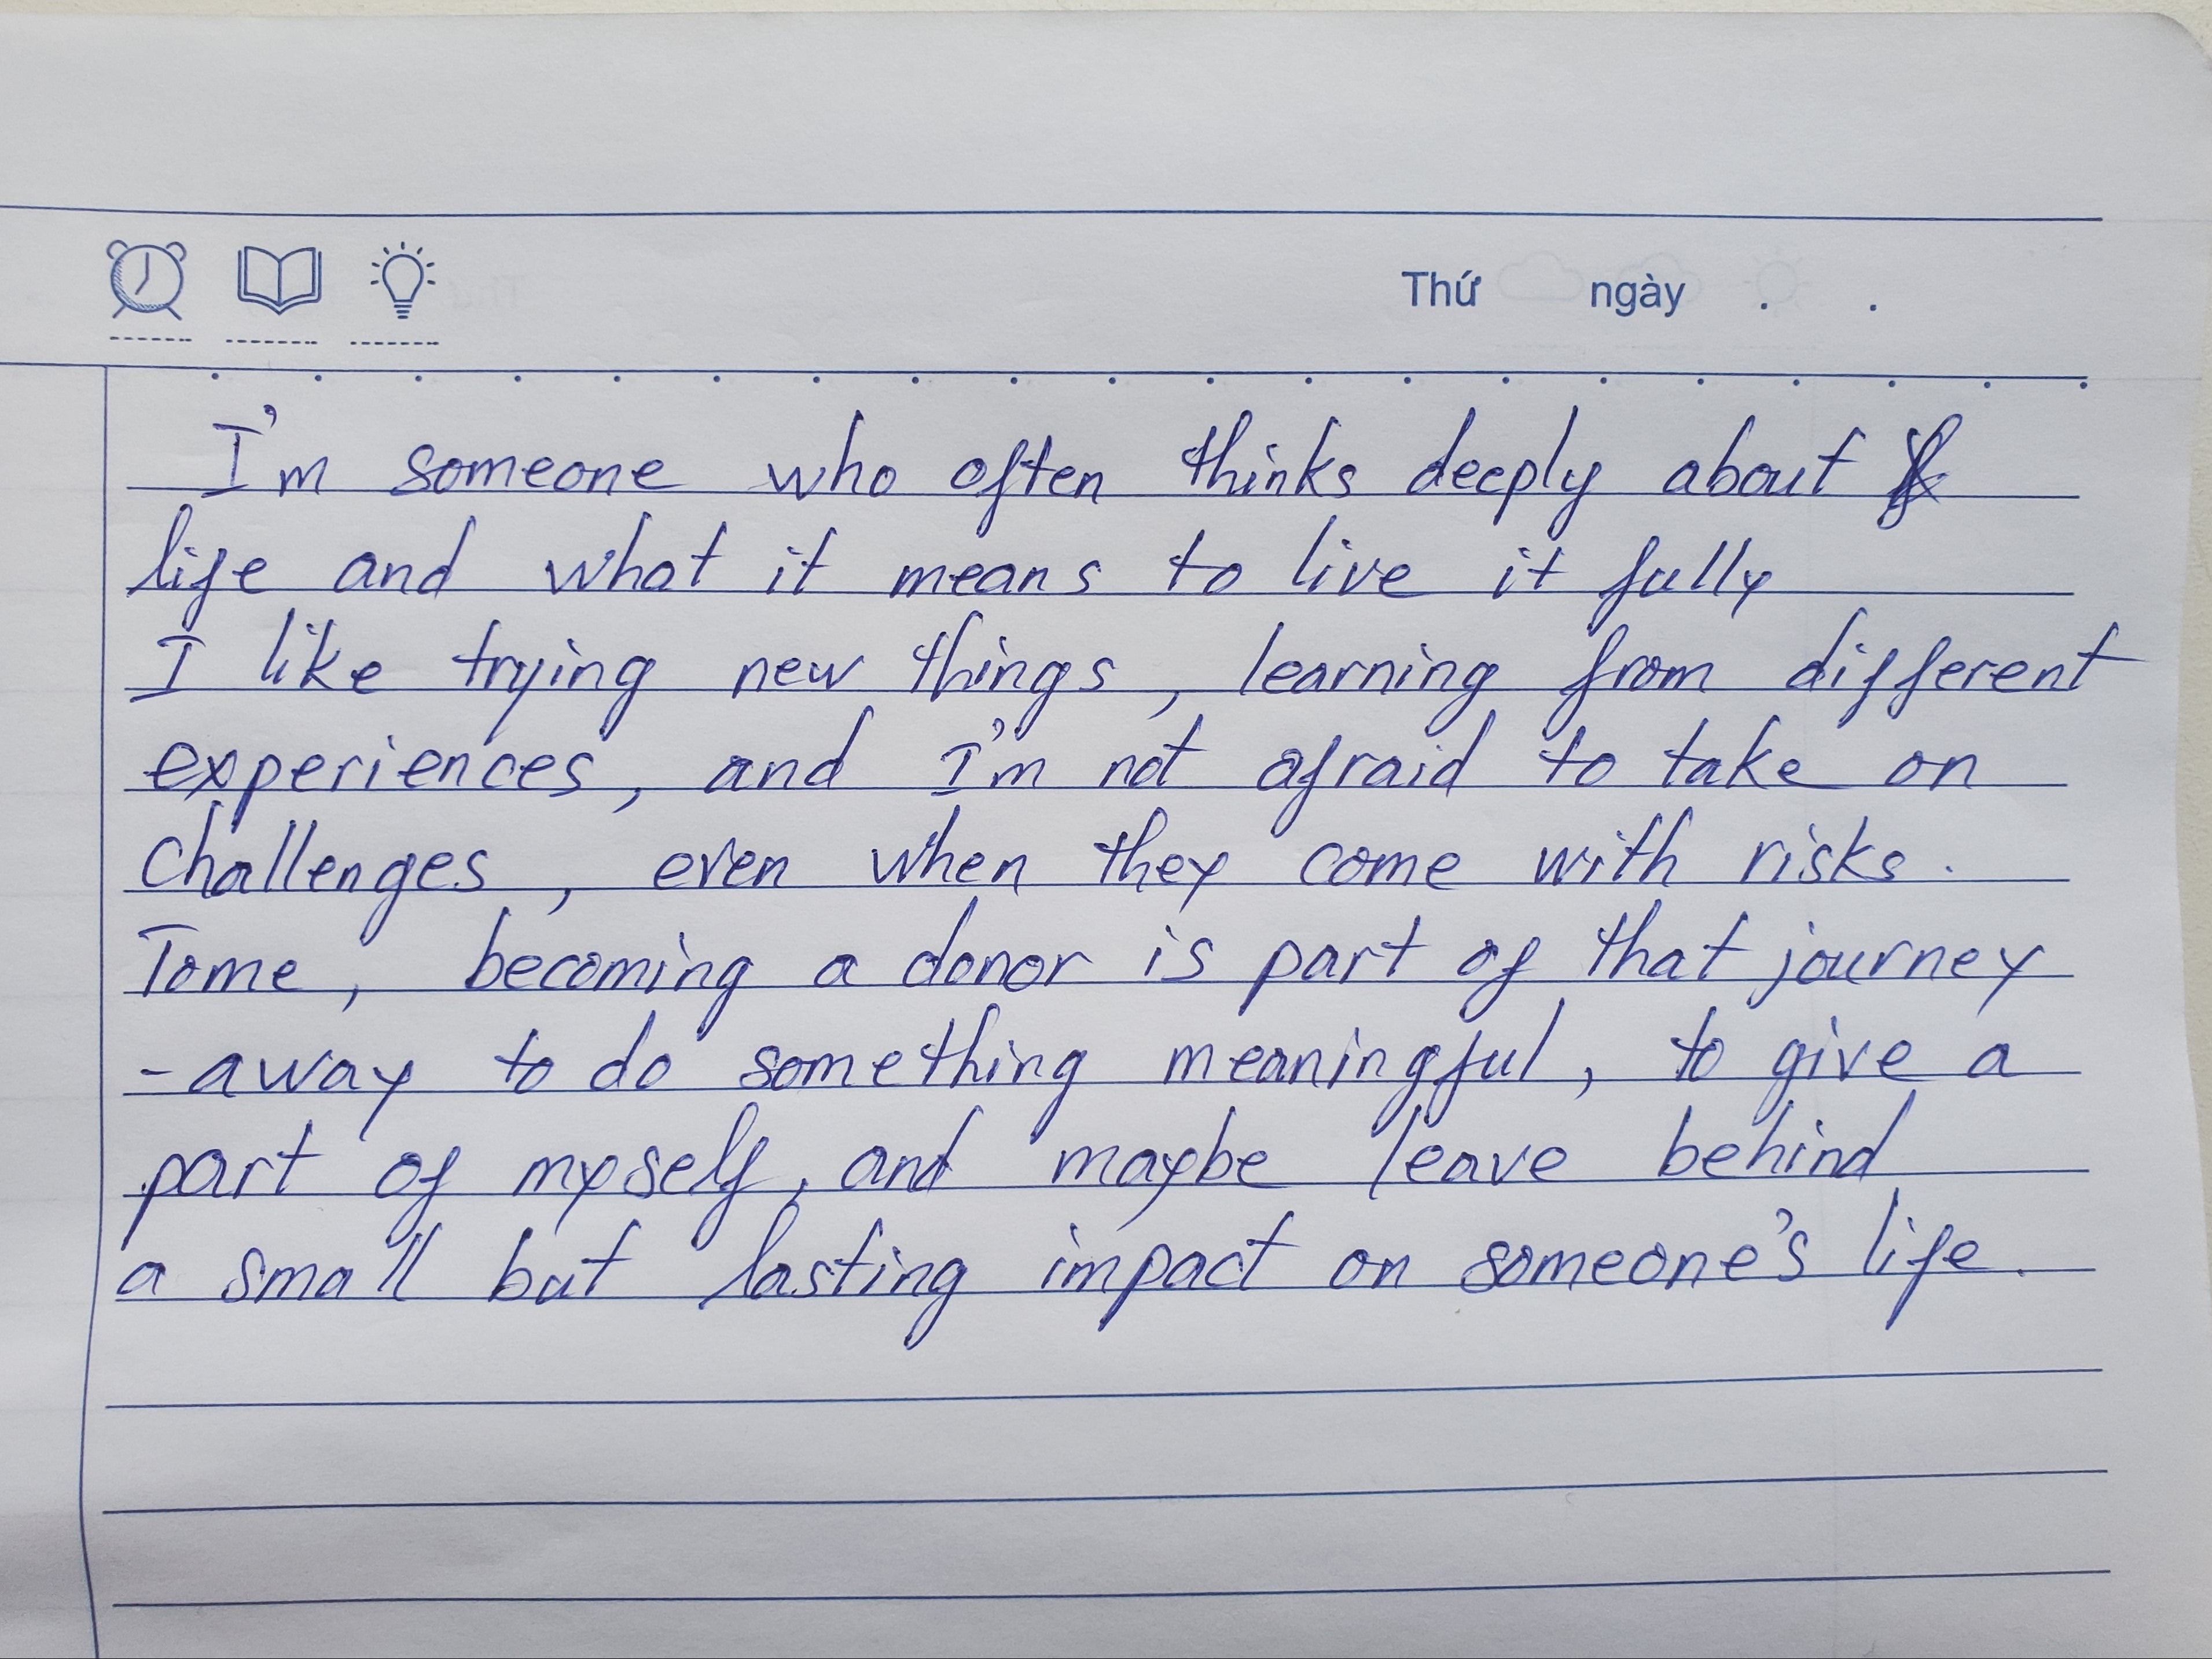 Thứ ngày . .
I'm someone who often thinks deeply about
life and what it means to live it fully
I like trying new things, learning from different
experiences, and I'm not afraid to take on
challenges, even when they come with risks.
Tome, becoming a donor is part of that journey
-away to do something meaningful, to give a
part of myself, and maybe leave behind
a small but lasting impact on someone's life.